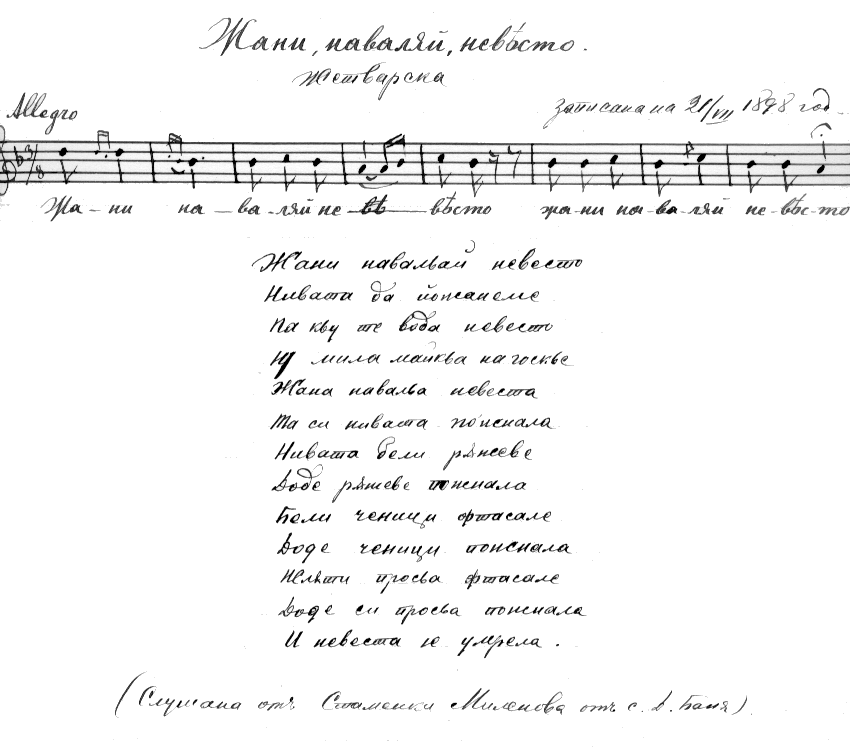 Жани, наваляй, невѣсто.
Жетварска
Allegro
записана на 21/VII 1898 год.
3/8
Жа-ни на-ва-ляй не-вѣ-вѣсто жа-ни на-ва-ляй не-вѣс-то
Жани навальай невесто
Нивата да йожанеме
Па кву те вода невесто
мила майкьа на госкье
Жана навальа невеста
Та си нивата пожнала
Нивата бели рѫжеве
Доде рѫжеве пожнала
Бели ченици фтасале
Доде ченици пожнала
Жлѫти просьа фтасале
Доде си просьа пожнала
И невеста ѥ умрела.
(Слушана отъ Стаменки Миленова отъ с. Д. Баня)